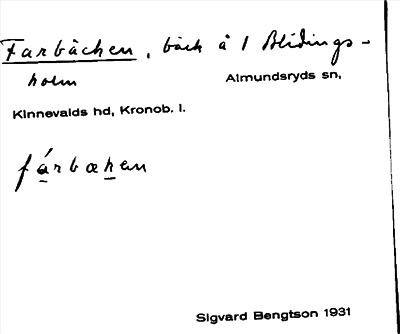 Farbäcken, bäck å 1 Blidings-
holm Almundsryds sn,
Kinnevalds hd, Kronob. l.
fárbæken
Sigvard Bengtson 1931